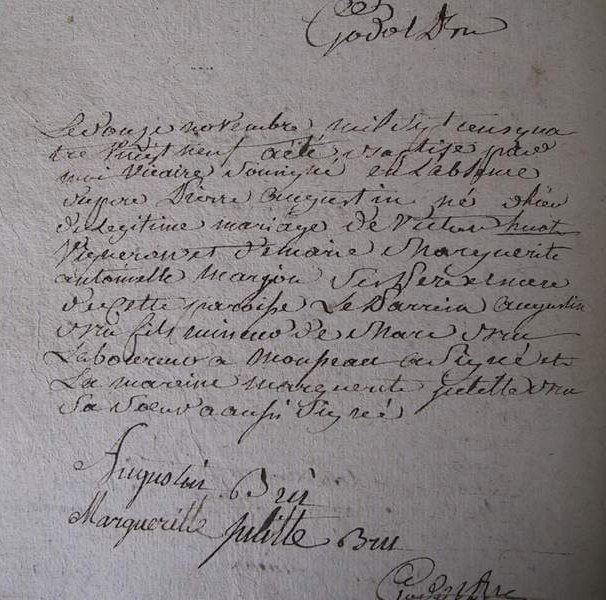 Le onze novembre mil sept cens qua
tre vingt neuf a été baptisé par
moi vicaire soussigné en l'absence
du pre Pierre augustin né d'hier
de legitime mariage de Victor huot
Vigneron et de marie Marguerite
antoinette Margion ses pere et mere
de cette paroisse Le Parrein augustin
bru fils mineur de Marc bru
Laboureur a Monpeau a signé et
La mareine marguerite julitte bru
Sa Soeur a aussi signée
Augustin Bru
Margueritte julitte Bru